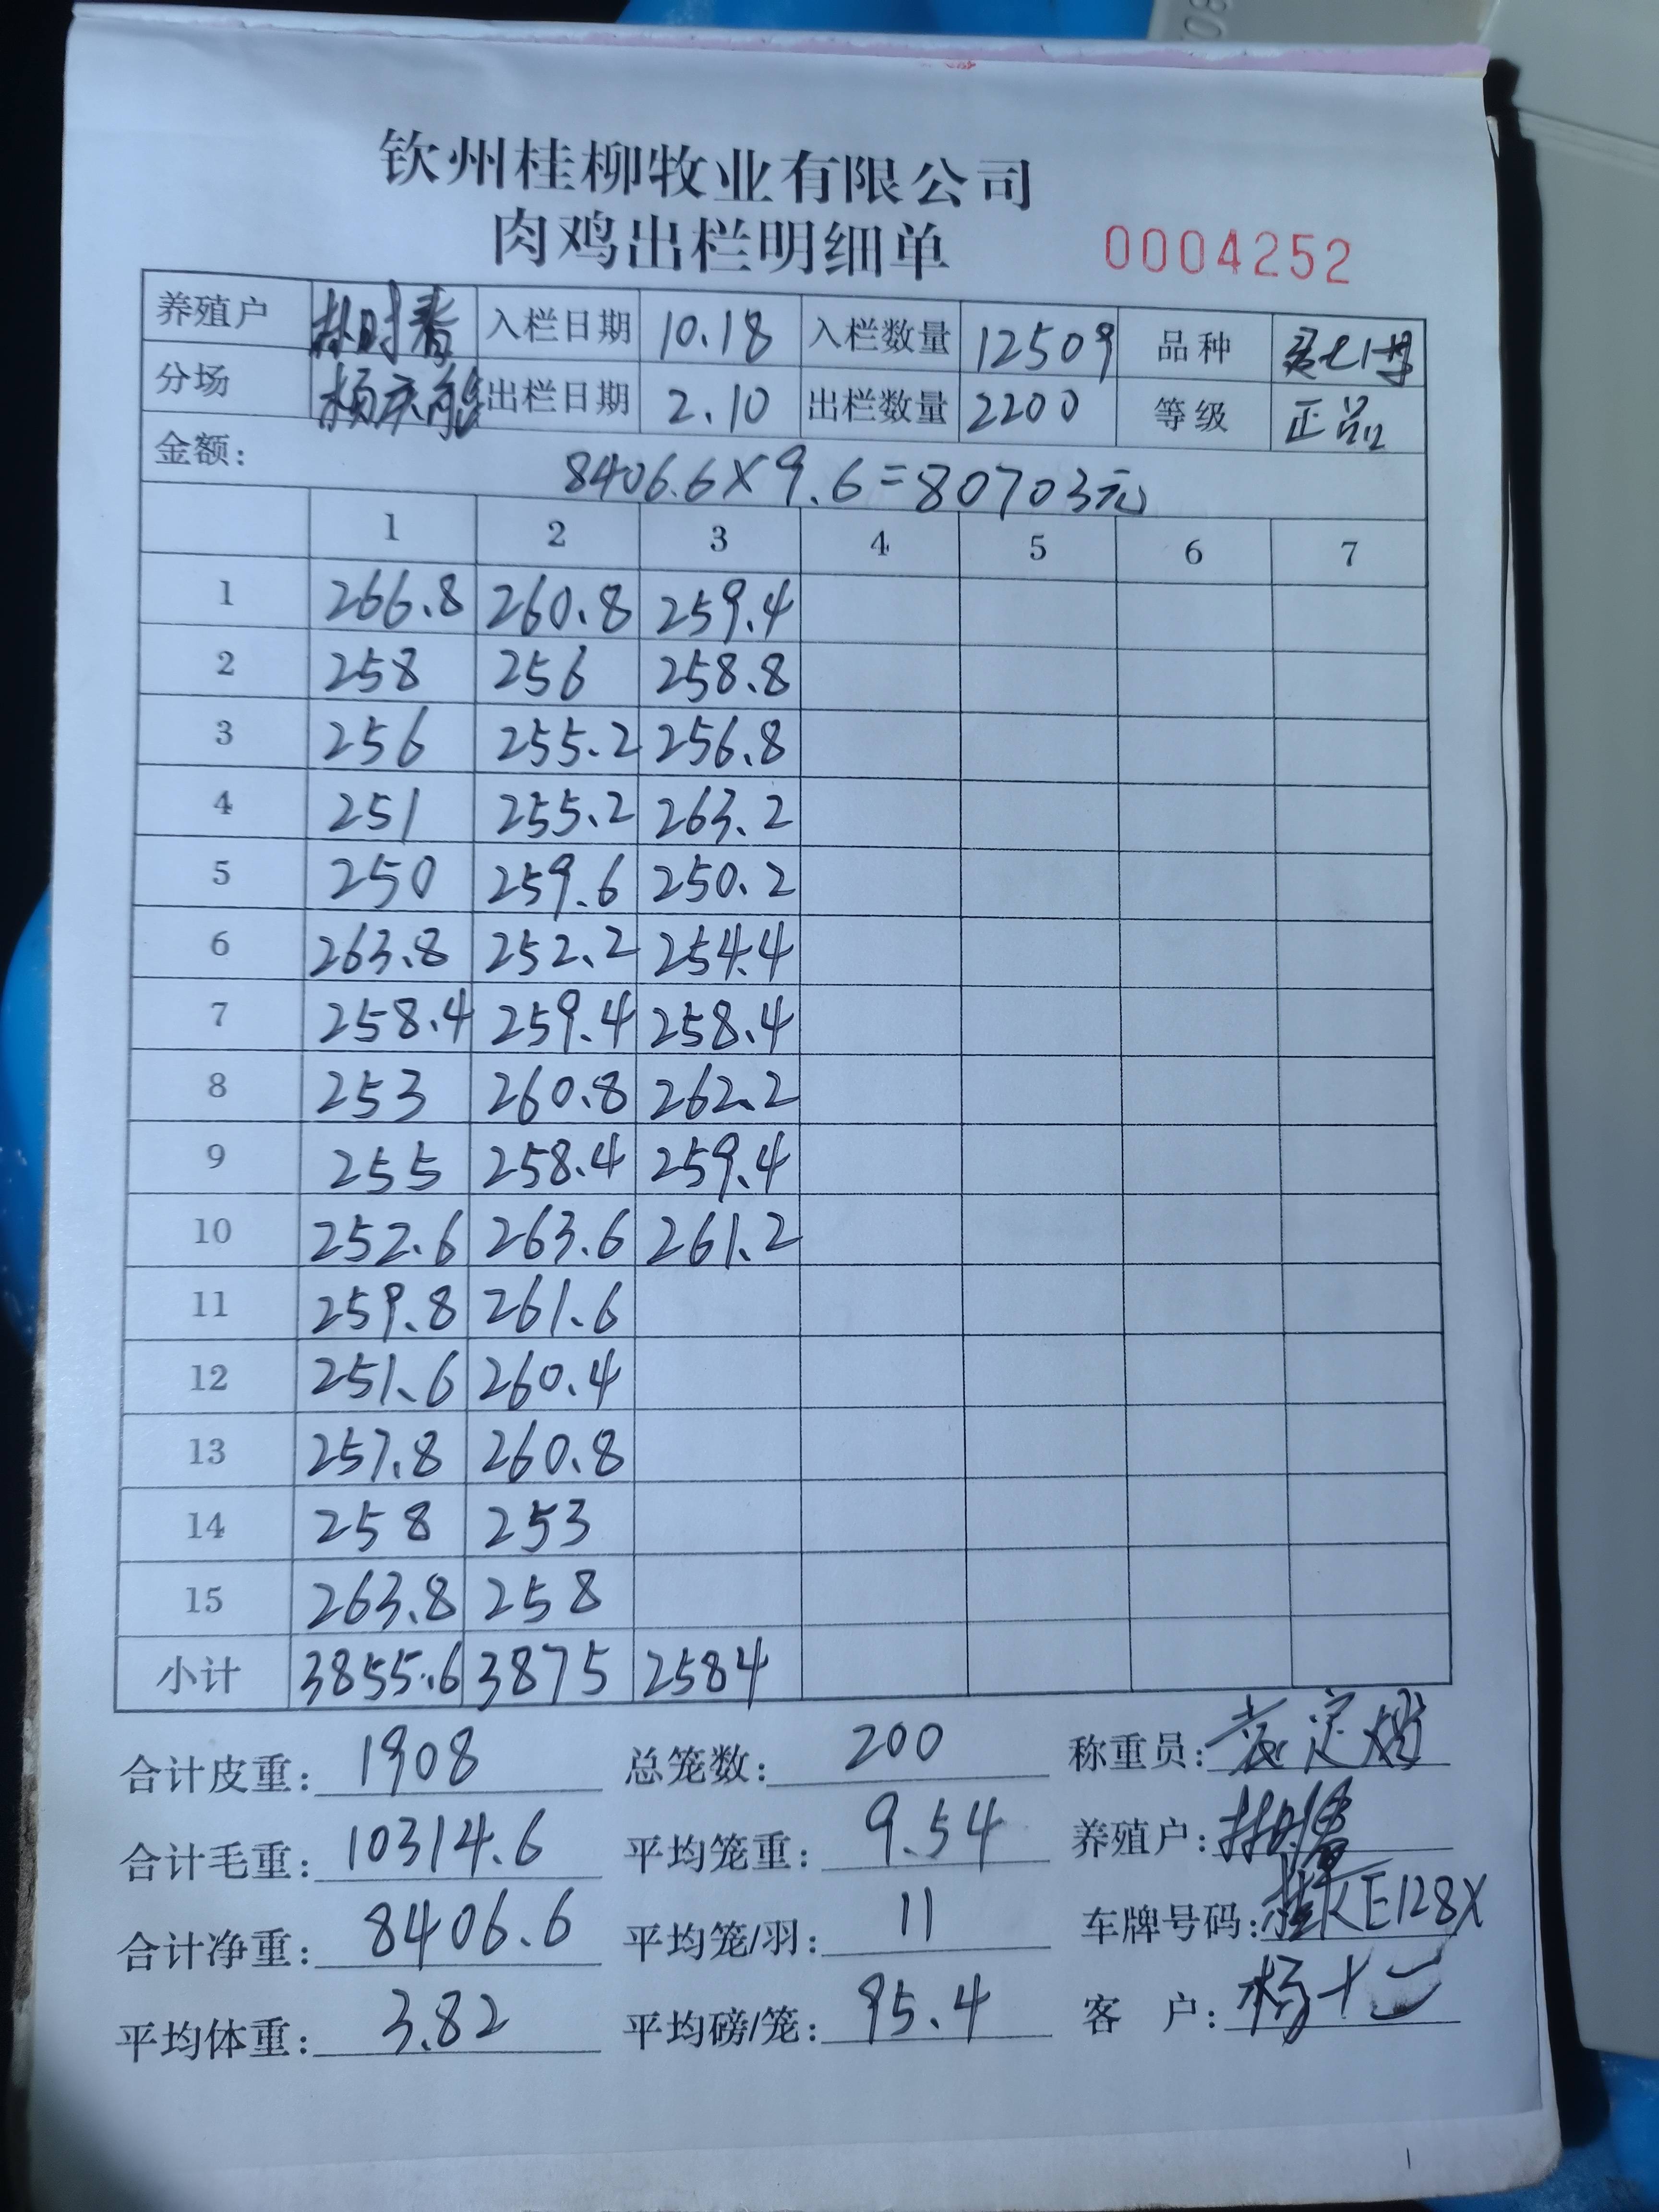 钦州桂柳牧业有限公司
肉鸡出栏明细单 0004252
养殖户 林时春 入栏日期 10.18 入栏数量 12509 品种
分场 杨庆能 出栏日期 2.10 出栏数量 2200 等级 正品
金额: 8406.6×9.6=80703元
1 2 3 4 5 6 7
1 266.8 260.8 259.4
2 258 256 258.8
3 256 255.2 256.8
4 251 255.2 263.2
5 250 259.6 250.2
6 263.8 252.2 254.4
7 258.4 259.4 258.4
8 253 260.8 262.2
9 255 258.4 259.4
10 252.6 263.6 261.2
11 259.8 261.6
12 251.6 260.4
13 257.8 260.8
14 258 253
15 263.8 258
小计 3855.6 3875 2584
合计皮重: 1908 总笼数: 200 称重员:
合计毛重: 10314.6 平均笼重: 9.54 养殖户:
合计净重: 8406.6 平均笼/羽: 11 车牌号码: 桂KE128X
平均体重: 3.82 平均磅/笼: 95.4 客 户: 杨十二